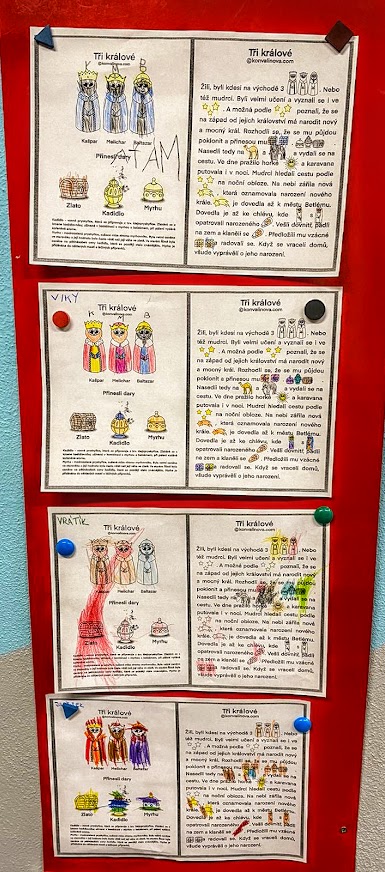 Tři králové
@konvalinova.com
K M B
Kašpar Melichar Baltazar
Přinesli dary
TAM
Zlato Kadidlo Myrhu
Tři králové
@konvalinova.com
Žili, byli kdesi na východě 3 . Nebo
též mudrci. Byli velmi učení a vyznali se i ve
. A možná podle poznali, že se
na západ od jejich království má narodit nový
a mocný král. Rozhodli se, že se mu půjdou
poklonit a přinesou mu
Nasedli tedy na a vydali se na
cestu. Ve dne pražilo horké a karavana
putovala i v noci. Mudrci hledali cestu podle
na noční obloze. Na nebi zářila nová
, která oznamovala narození nového
krále. , je dovedla až k městu Betlému.
Dovedla je až ke chlévu, kde s
opatrovali narozeného . Vešli dovnitř, padli
na zem a klaněli se . Předložili mu vzácné
radovali se. Když se vraceli domů,
všude vyprávěli o jeho narození.
VIKY
Tři králové
@konvalinova.com
K M B
Kašpar Melichar Baltazar
Přinesli dary
Zlato Kadidlo Myrhu
Tři králové
@konvalinova.com
Žili, byli kdesi na východě 3 . Nebo
též mudrci. Byli velmi učení a vyznali se i ve
. A možná podle poznali, že se
na západ od jejich království má narodit nový
a mocný král. Rozhodli se, že se mu půjdou
poklonit a přinesou mu
Nasedli tedy na a vydali se na
cestu. Ve dne pražilo horké a karavana
putovala i v noci. Mudrci hledali cestu podle
na noční obloze. Na nebi zářila nová
, která oznamovala narození nového
krále. , je dovedla až k městu Betlému.
Dovedla je až ke chlévu, kde s
opatrovali narozeného . Vešli dovnitř, padli
na zem a klaněli se . Předložili mu vzácné
radovali se. Když se vraceli domů,
všude vyprávěli o jeho narození.
VRÁTÍK
Tři králové
@konvalinova.com
Melichar Baltazar
Přinesli dary
Zlato Kadidlo Myrhu
Tři králové
@konvalinova.com
Žili, byli kdesi na východě 3 . Nebo
též mudrci. Byli velmi učení a vyznali se i ve
. A možná podle poznali, že se
na západ od jejich království má narodit nový
a mocný král. Rozhodli se, že se mu půjdou
poklonit a přinesou mu
Nasedli tedy na a vydali se na
cestu. Ve dne pražilo horké a karavana
putovala i v noci. Mudrci hledali cestu podle
na noční obloze. Na nebi zářila nová
, která oznamovala narození nového
krále. , je dovedla až k městu Betlému.
Dovedla je až ke chlévu, kde s
opatrovali narozeného . Vešli dovnitř, padli
na zem a klaněli se . Předložili mu vzácné
radovali se. Když se vraceli domů,
všude vyprávěli o jeho narození.
Tři králové
@konvalinova.com
Kašpar Melichar Baltazar
Přinesli dary
Zlato Kadidlo Myrhu
Tři králové
@konvalinova.com
Žili, byli kdesi na východě 3 . Nebo
též mudrci. Byli velmi učení a vyznali se i ve
. A možná podle poznali, že se
na západ od jejich království má narodit nový
a mocný král. Rozhodli se, že se mu půjdou
poklonit a přinesou mu
Nasedli tedy na a vydali se na
cestu. Ve dne pražilo horké a karavana
putovala i v noci. Mudrci hledali cestu podle
na noční obloze. Na nebi zářila nová
, která oznamovala narození nového
krále. , je dovedla až k městu Betlému.
Dovedla je až ke chlévu, kde s
opatrovali narozeného . Vešli dovnitř, padli
na zem a klaněli se . Předložili mu vzácné
radovali se. Když se vraceli domů,
všude vyprávěli o jeho narození.